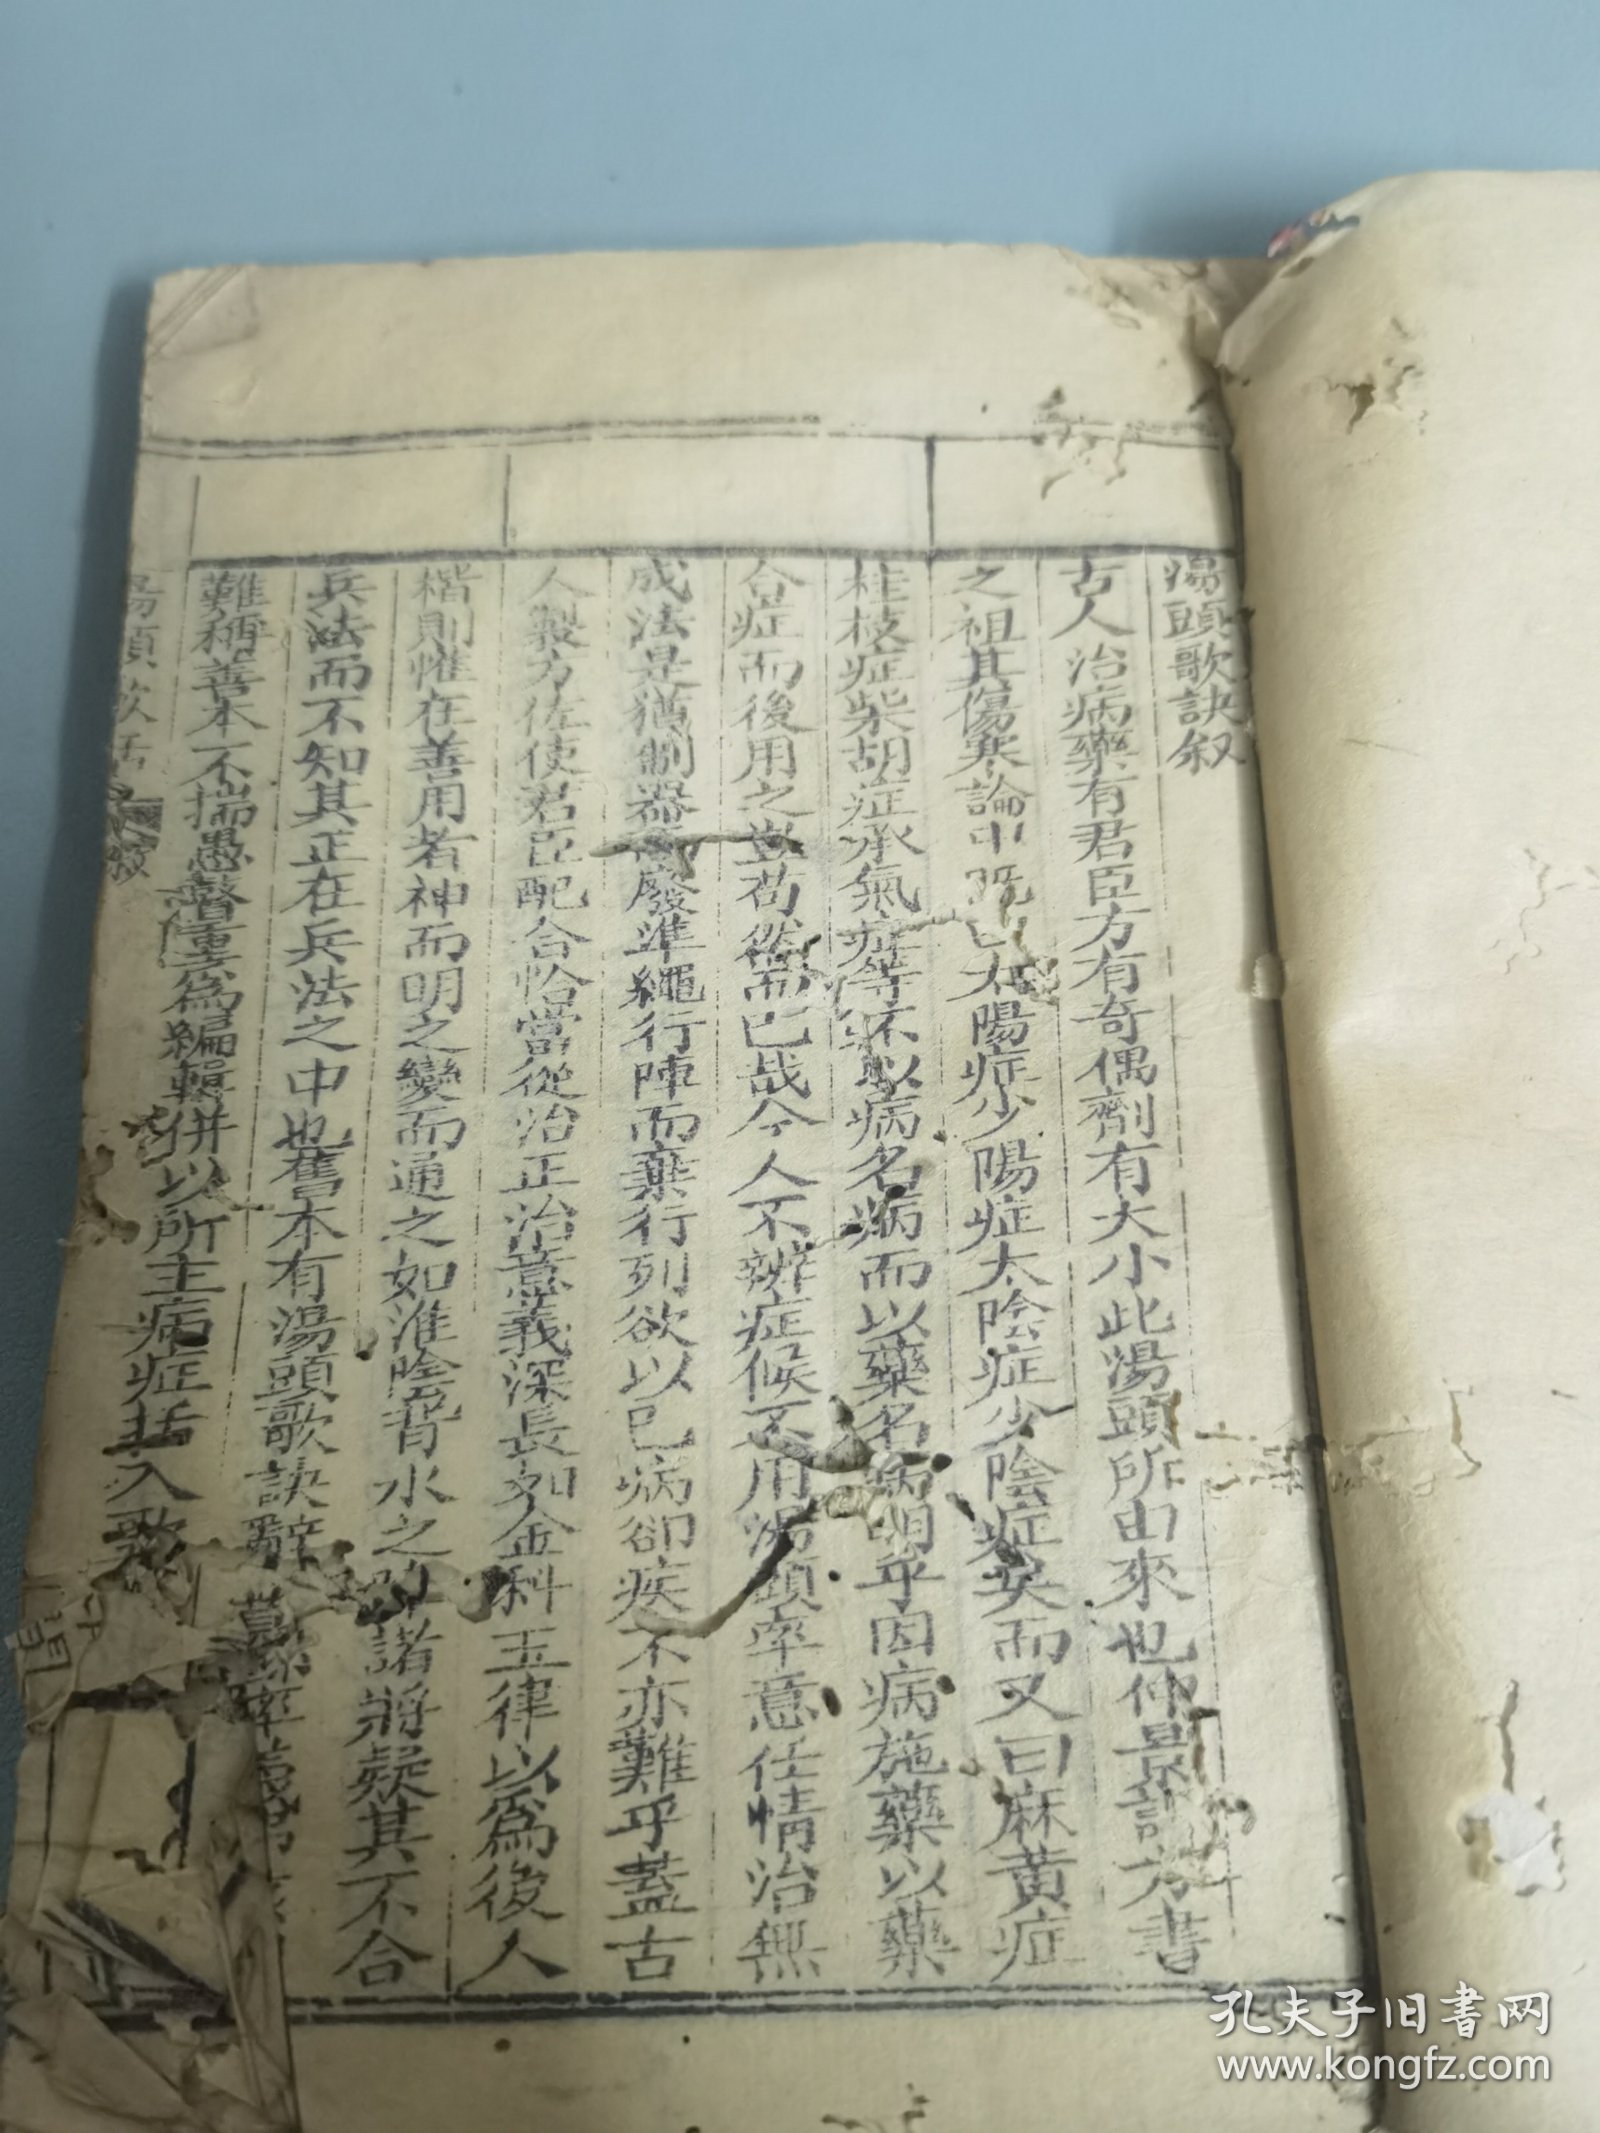 湯頭歌訣叙
古人治病藥有君臣方有奇偶劑有大小此湯頭所由來也仲景 方書
之祖其傷寒論中既曰太陽症少陽症太陰症少陰症矣而又曰麻黃症
桂枝症柴胡症承氣症等不以病名病而以藥名病明乎因病施藥以藥
合症而後用之豈苟然而已哉今人不辨症候不用湯頭率意任情治無
成法是猶制器而廢準繩行陣而棄行列欲以已病卻疾不亦難乎蓋古
人製方佐使君臣配合恰當從治正治意義深長如金科玉律以為後人
楷則惟在善用者神而明之變而通之如淮陰背水之 諸將疑其不合
兵法而不知其正在兵法之中也舊本有湯頭歌訣辭
難稱善本不揣愚瞽重為編輯併以所主病症括入歌
孔夫子旧書网
www.kongfz.com